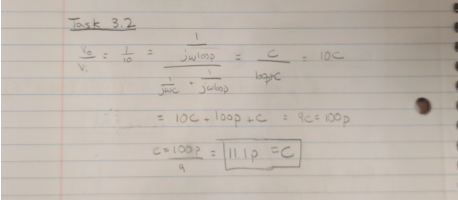 Task 3.2
Vo/Vi = 1/10 = (1/(jω100p)) / (1/(jωc) + 1/(jω100p)) = C/(100p+C) = 10C
= 10C = 100p + C = 9C = 100p
C = 100p/9 = 11.1p = C